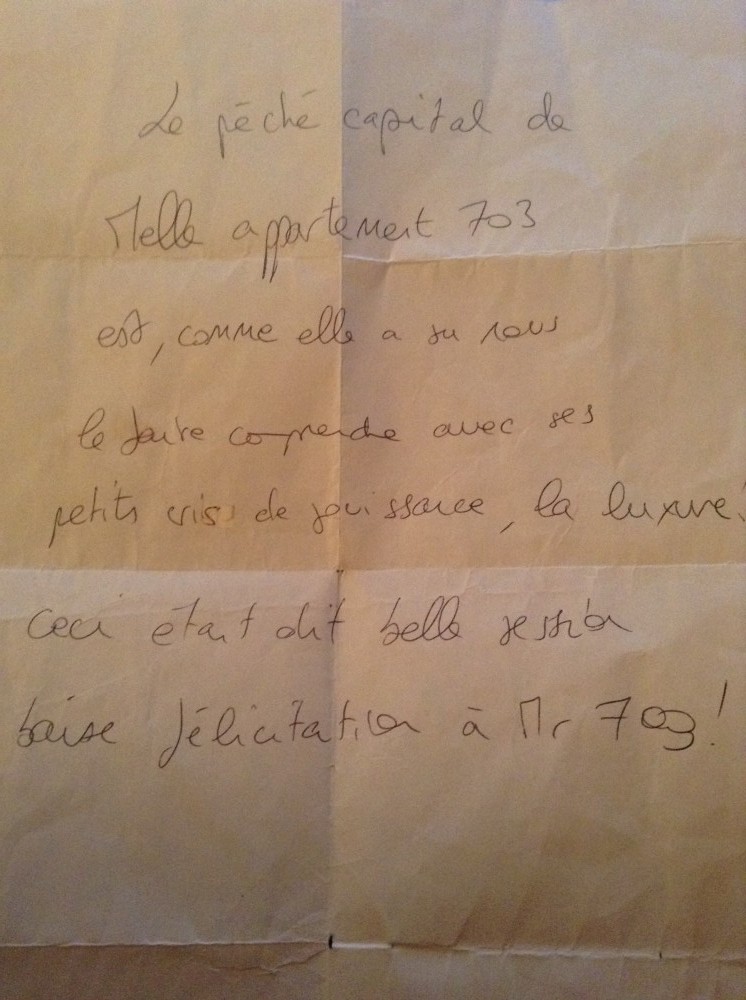 Le péché capital de
Melle appartement 703
est, comme elle a su nous
le faire comprendre avec ses
petits cris de jouissance, la luxure!
Ceci étant dit belle session
baise félicitation à Mr 703!